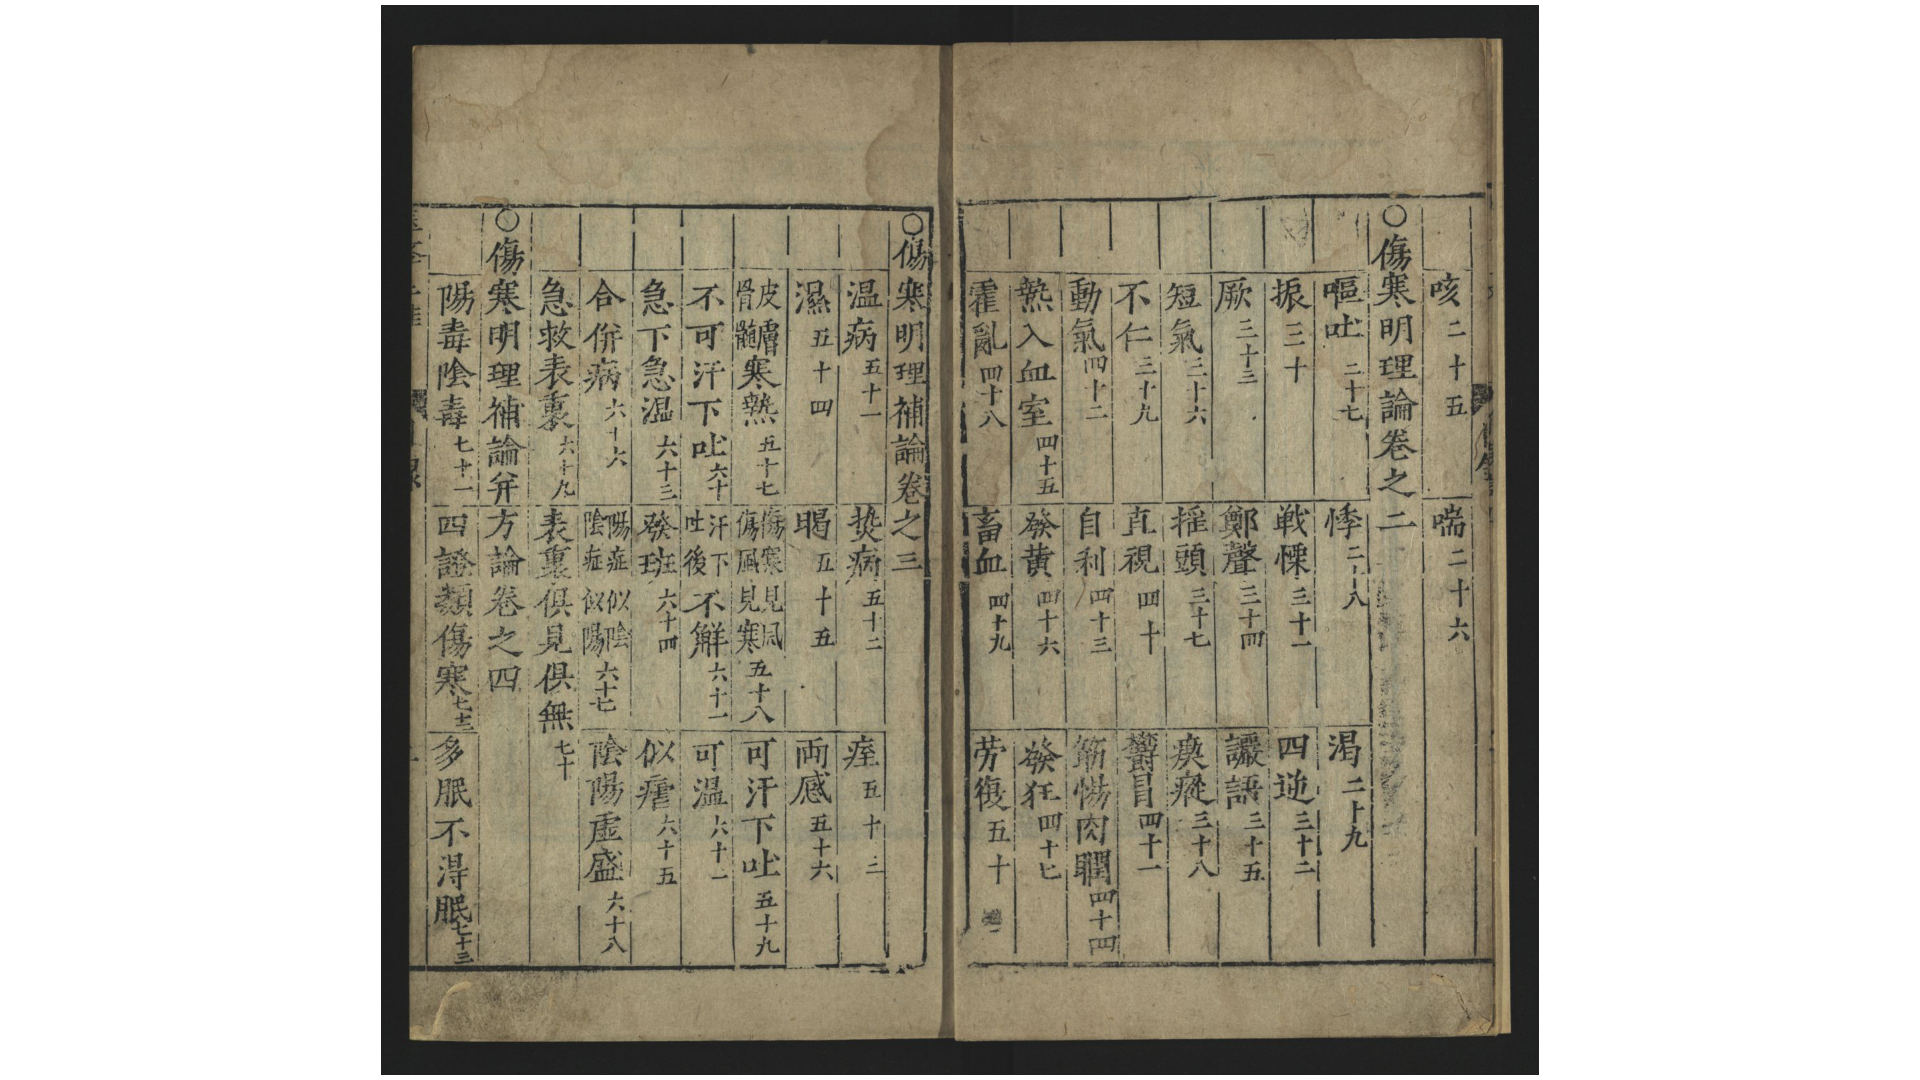 咳二十五 喘二十六
○傷寒明理論卷之二
嘔吐二十七 悸二十八 渴二十九
振三十 戰慄三十一 四逆三十二
厥三十三 鄭聲三十四 讝語三十五
短氣三十六 揺頭三十七 瘈瘲三十八
不仁三十九 直視四十 鬱冒四十一
動氣四十二 自利四十三 筋惕肉瞤四十四
熱入血室四十五 發黄四十六 發狂四十七
霍亂四十八 畜血四十九 劳復五十
○傷寒明理補論卷之三
温病五十一 热病五十二 痓五十三
濕五十四 暍五十五 両感五十六
皮膚骨髓寒熱五十七 傷寒見風傷風見寒五十八 可汗下吐五十九
不可汗下吐六十 汗下吐後不觧六十一 可温六十一
急下急温六十三 發斑六十四 似瘧六十五
合併病六十六 陽症似陰陰症似陽六十七 陰陽虚盛六十八
急救表裏六十九 表裏俱見俱無七十
○傷寒明理補論并方論卷之四
陽毒陰毒七十一 四證類傷寒七十二 多眠不得眠七十三